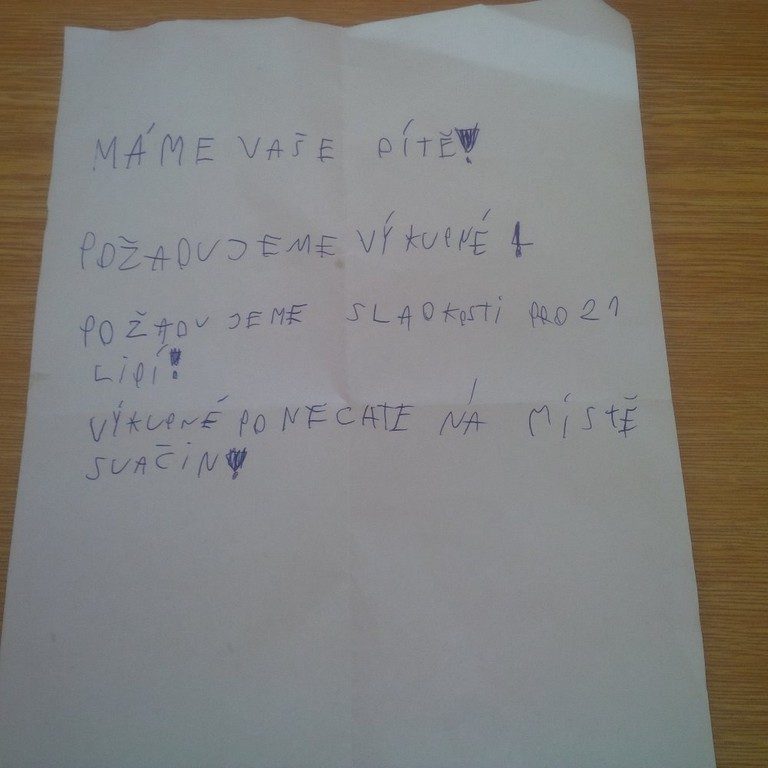 MÁME VAŠE DÍTĚ!
POŽADUJEME VÝKUPNÉ
POŽADUJEME SLADKOSTI PRO 21
LIDÍ!
VÝKUPNÉ PONECHTE NÁ MÍSTĚ
SVAČIN!